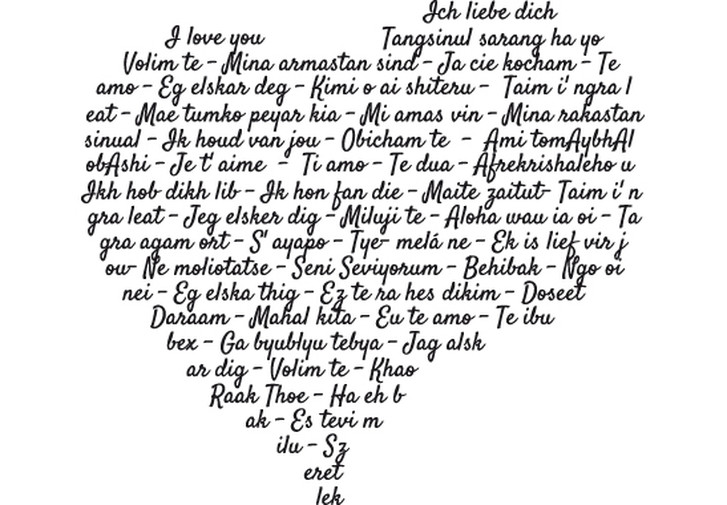 Ich liebe dich
I love you Tangsinul sarang ha yo
Volim te - Mina armastan sind - Ja cie kocham - Te
amo - Eg elskar deg - Kimi o ai shiteru - Taim i' ngra l
eat - Mae tumko peyar kia - Mi amas vin - Mina rakastan
sinual - Ik houd van jou - Obicham te - Ami tomAybhAl
obAshi - Je t' aime - Ti amo - Te dua - Afrekrishaleho u
Ikh hob dikh lib - Ik hon fan die - Maite zaitut- Taim i' n
gra leat - Jeg elsker dig - Miluji te - Aloha wau ia oi - Ta
gra agam ort - S' ayapo - Tye- melá ne - Ek is lief vir j
ou- Ne moliotatse - Seni Seviyorum - Behibak - Ngo oi
nei - Eg elska thig - Ez te ra hes dikim - Doseet
Daraam - Mahal kita - Eu te amo - Te ibu
bex - Ga byublyu tebya - Jag alsk
ar dig - Volim te - Khao
Raak Thoe - Ha eh b
ak - Es tevi m
ilu - Sz
eret
lek